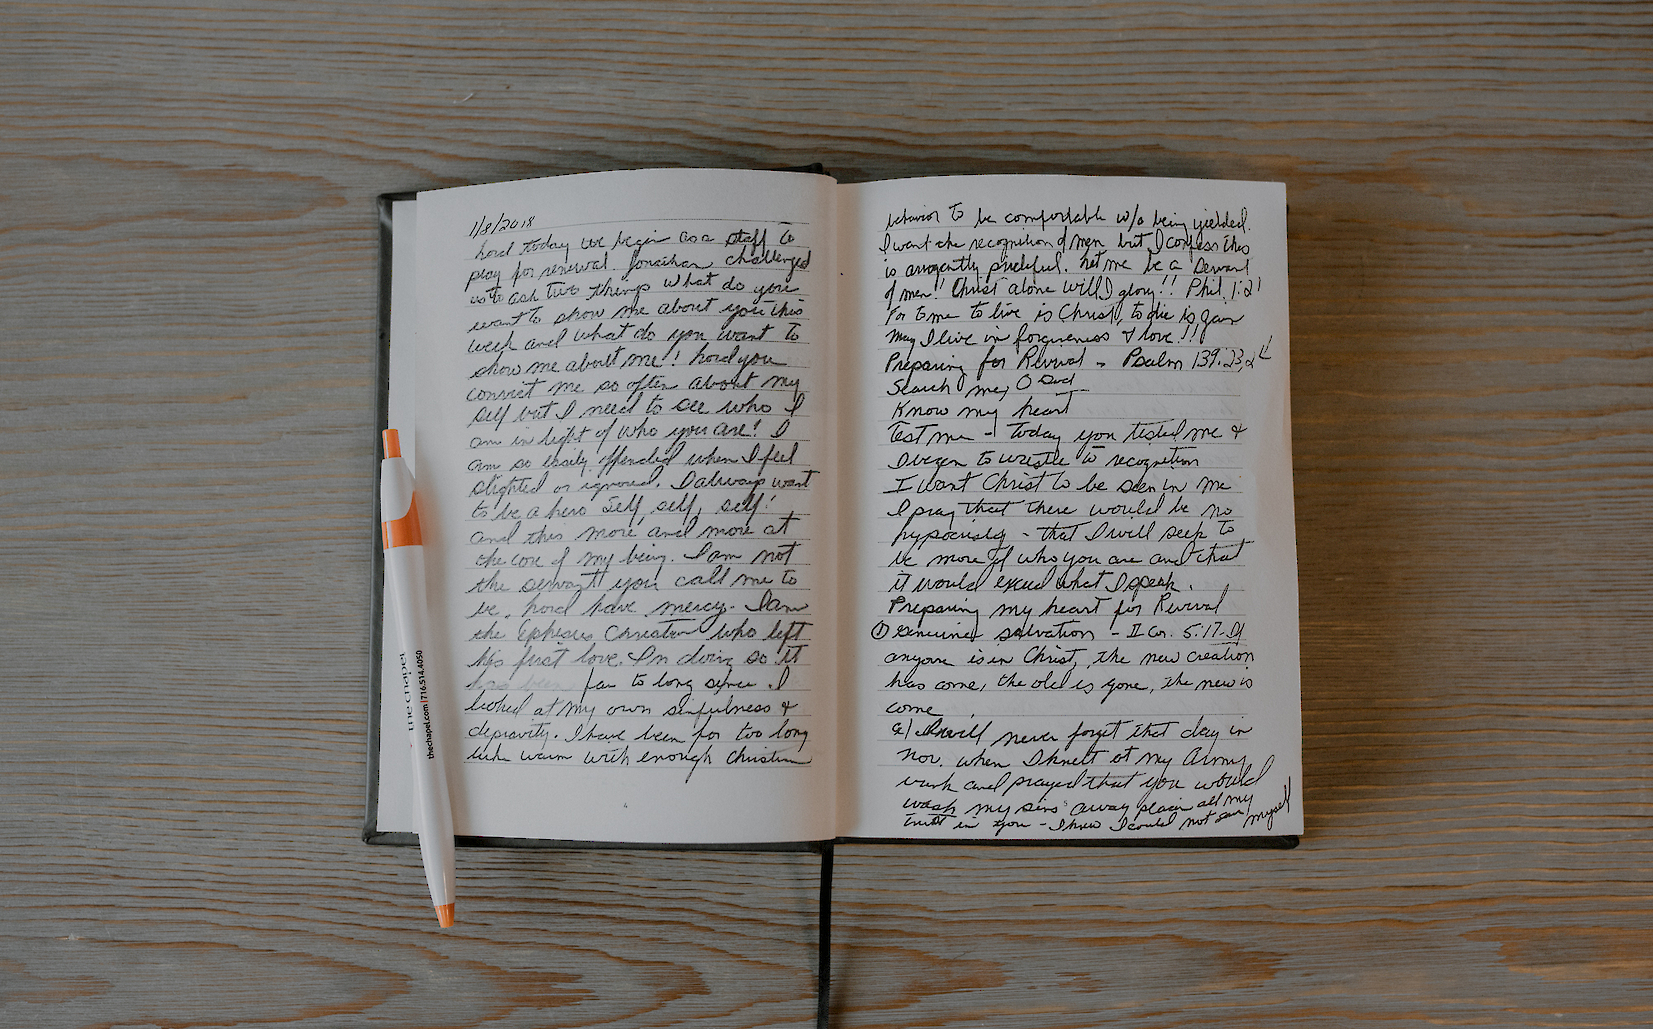 1/8/2018
Lord today we begin as a staff to
pray for renewal. Jonathan challenged
us to ask two things what do you
want to show me about you this
week and what do you want to
show me about me! Lord you
convict me so often about my
self but I need to see who I
am in light of who you are! I
am so easily offended when I feel
slighted or ignored. I always want
to be a hero self, self, self!
and this more and more at
the core of my being. I am not
the servant you call me to
be. Lord have mercy. I am
the Ephesus Christian who left
his first love. In doing so it
has been far to long since I
looked at my own sinfulness &
depravity. I have been for too long
luke warm with enough Christian
behavior to be comfortable w/o being yielded.
I want the recognition of men but I confess this
is arrogantly prideful. Let me be a servant
of men! Christ alone will I glory!! Phil. 1:21
For to me to live is Christ, to die is gain
may I live in forgiveness & love!!
Preparing for Revival - Psalm 139:23,24
Search me, O God
Know my heart
Test me - today you tested me &
I began to wrestle w recognition
I want Christ to be seen in me
I pray that there would be no
hypocrisy - that I will seek to
be more of who you are and that
it would exceed what I speak.
Preparing my heart for Revival
① Genuine salvation - II Cor. 5:17. If
anyone is in Christ, the new creation
has come, the old is gone, the new is
come
a) I will never forget that day in
Nov. when I knelt at my Army
bunk and prayed that you would
wash my sins away place all my
trust in you - I knew I could not save myself
the chapel
thechapel.com | 716.514.4050